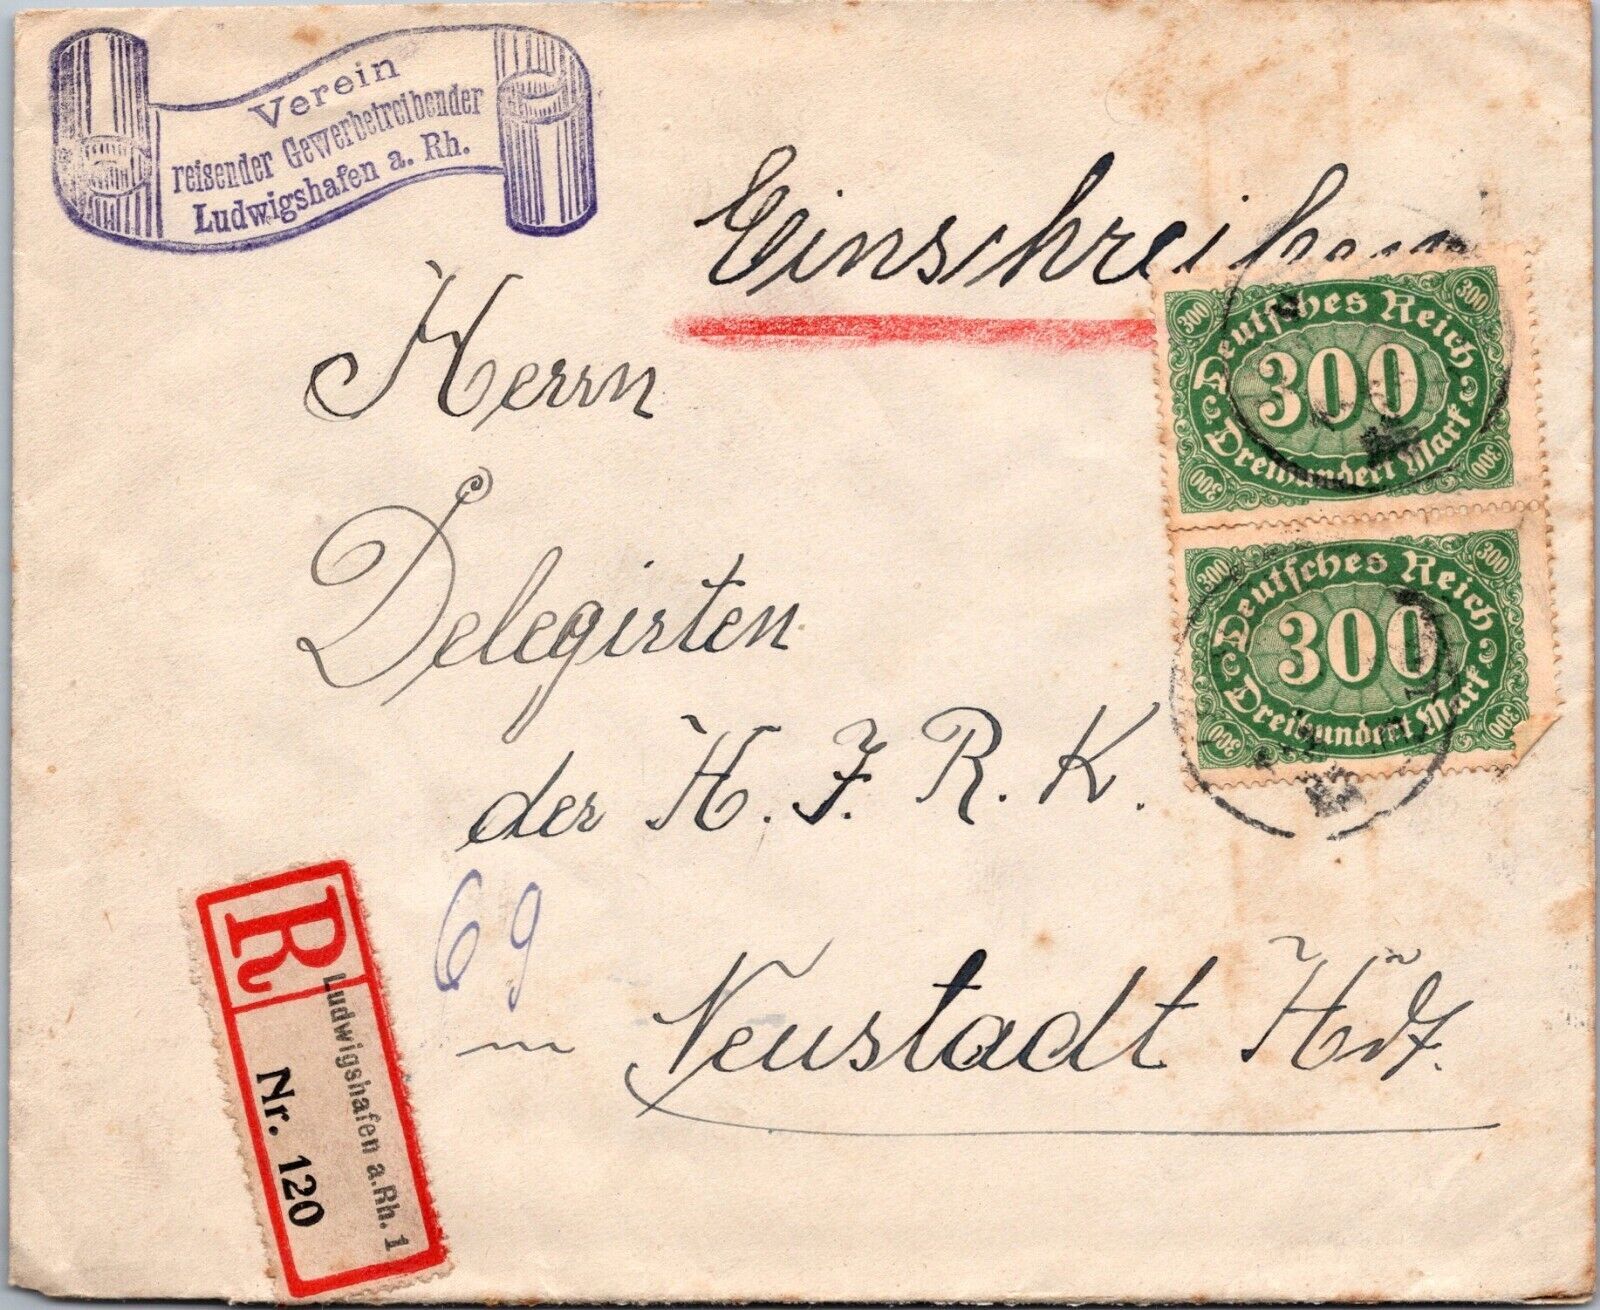 Verein
reisender Gewerbetreibender
Ludwigshafen a. Rh.
Einschreiben
Herrn
Delegirten
der H. J. R. K.
69
in Neustadt Hdt.
300 Deutsches Reich 300
300
300 Dreihundert Mark 300
300 Deutsches Reich 300
300
300 Dreihundert Mark 300
R
Ludwigshafen a.Rh. 1
Nr. 120